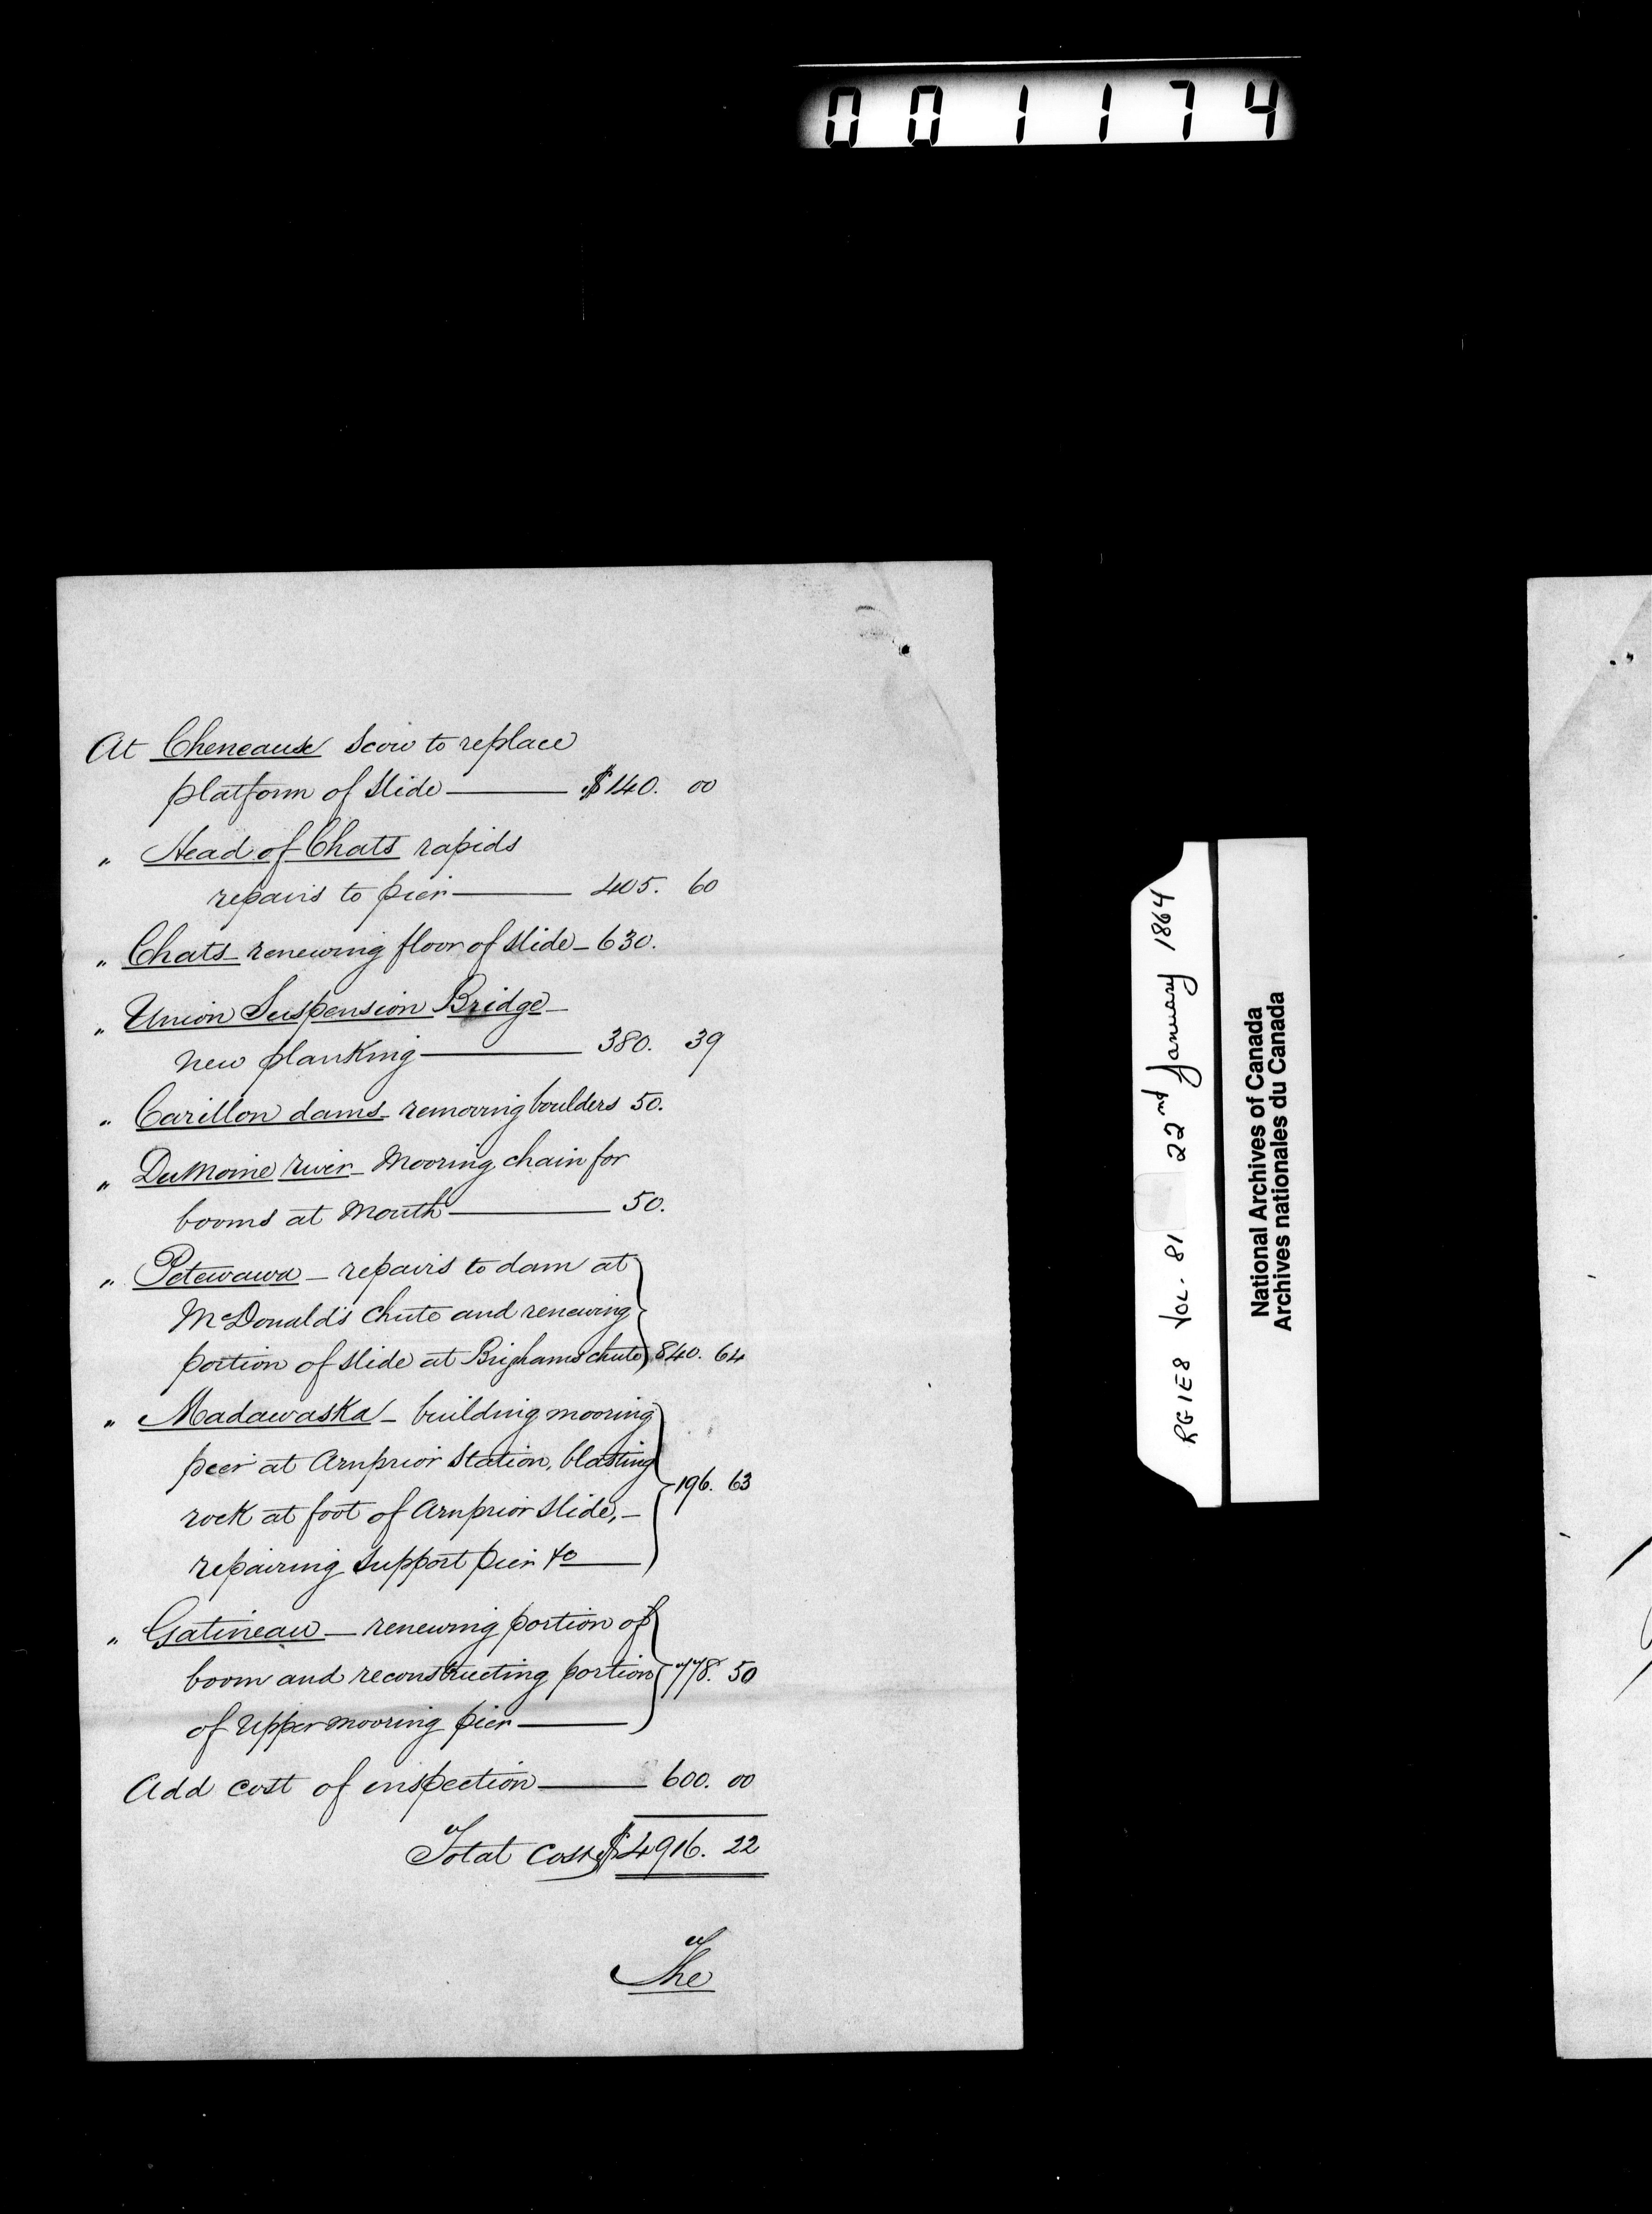 001174
At Cheneause Scow to replace
platform of slide — $140. 00
„ Head of Chats rapids
repairs to pier — 405. 60
„ Chats - renewing floor of slide - 630.
„ Union Suspension Bridge -
new planking — 380. 39
„ Carillon dams - removing boulders 50.
„ DuMoine river - Mooring chain for
booms at Mouth — 50.
„ Petewawa - repairs to dam at
McDonald's Chute and renewing
portion of slide at Brighams chute 840. 64
„ Madawaska - building mooring
peer at Arnprior Station, blasting
rock at foot of Arnprior slide, - 196. 63
repairing support pier &c —
„ Gatineau - renewing portion of
boom and reconstructing portion 778. 50
of Upper mooring pier —
Add cost of inspection — 600. 00
Total Cost $4916. 22
The
RG1E8 VOL. 81 22nd January 1864
National Archives of Canada
Archives nationales du Canada